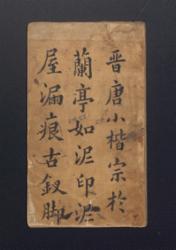 晋唐小楷宗於
蘭亭如泥印泥
屋漏痕古釵脚